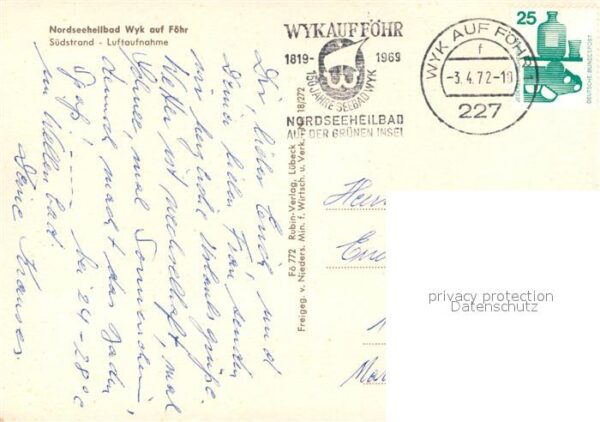 Nordseeheilbad Wyk auf Föhr
Südstrand - Luftaufnahme
WYK AUF FÖHR
1819- 1969
150 JAHRE SEEBAD WYK
NORDSEEHEILBAD
AUF DER GRÜNEN INSEL
WYK AUF FÖHR
f
-3.4.72-10
227
25
DEUTSCHE BUNDESPOST
Fö 772 Rubin-Verlag, Lübeck 18/272
Freigeg. v. Nieders. Min. f. Wirtsch. u. Verk.
Dir, lieber Erich, und
Deiner lieben Frau senden
wir herzliche Urlaubsgrüße.
Wetter ist wechselhaft, mal
Schnee, mal Sonnenschein,
dennoch macht das Baden
Spaß, — bei 24-28°C
im Wellenbad.
Deine
privacy protection
Datenschutz